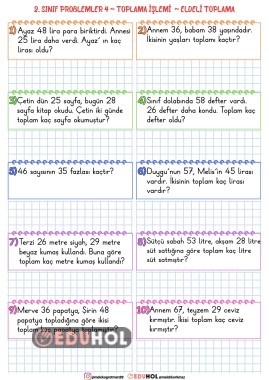 2. SINIF PROBLEMLER 4 - TOPLAMA İŞLEMİ - ELDELİ TOPLAMA
1) Ayaz 48 lira para biriktirdi. Annesi
25 lira daha verdi. Ayaz' ın kaç
lirası oldu?
2) Annem 36, babam 38 yaşındadır.
İkisinin yaşları toplamı kaçtır?
3) Çetin dün 25 sayfa, bugün 28
sayfa kitap okudu. Çetin iki günde
toplam kaç sayfa okumuştur?
4) Sınıf dolabında 58 defter vardı.
26 defter daha kondu. Toplam kaç
defter oldu?
5) 46 sayısının 35 fazlası kaçtır?
6) Duygu'nun 57, Melis'in 45 lirası
vardır. İkisinin toplam kaç lirası
vardır?
7) Terzi 26 metre siyah, 29 metre
beyaz kumaş kullandı. Buna göre
toplam kaç metre kumaş kullandı?
8) Sütçü sabah 53 litre, akşam 28 litre
süt sattığına göre toplam kaç litre
süt satmıştır?
9) Merve 36 papatya, Şirin 48
papatya topladığına göre ikisi
toplam kaç papatya toplamıştır?
10) Annem 67, teyzem 29 ceviz
kırmıştır. İkisi toplam kaç ceviz
kırmıştır?
EDUHOL
EDUHOL